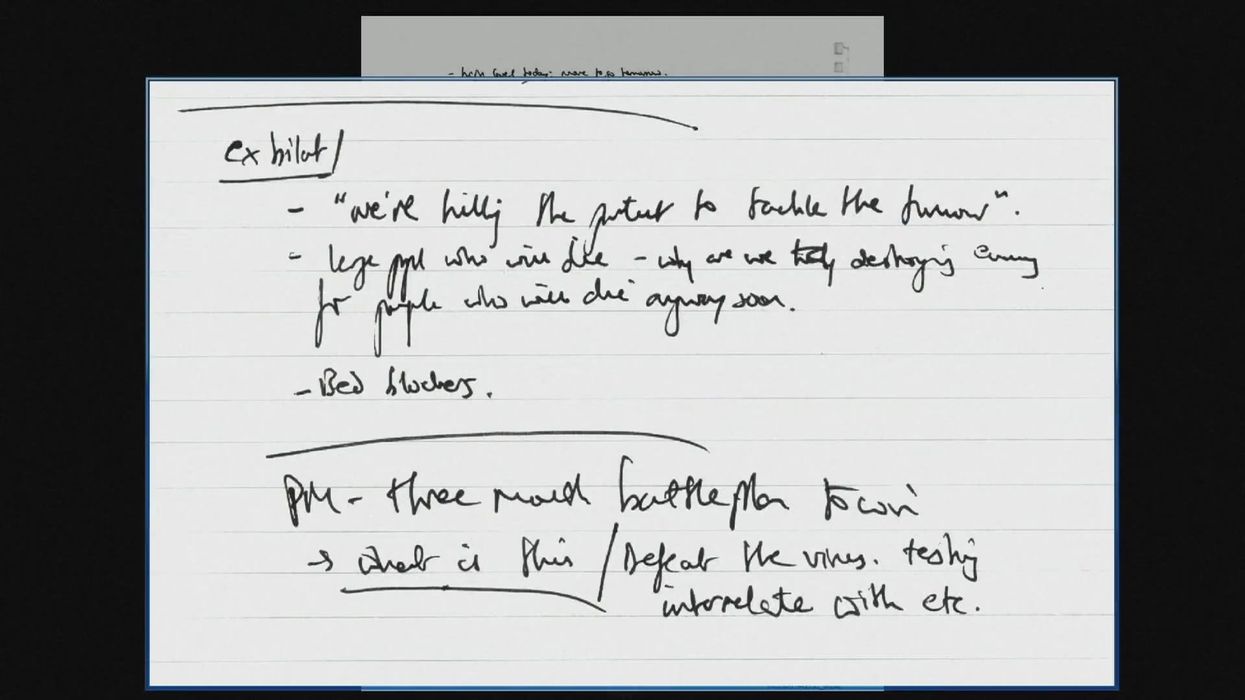 ex bilat/
- "we're killing the patient to tackle the tumour".
- large ppl who will die - why are we destroying economy
for people who will die anyway soon.
- Bed blockers.
PM - three month battleplan to win
→ what is this / Defeat the virus. testing
interrelate with etc.